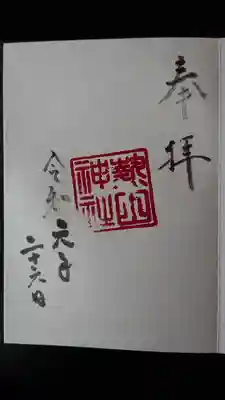 奉拝
神社
令和元年
二十六日